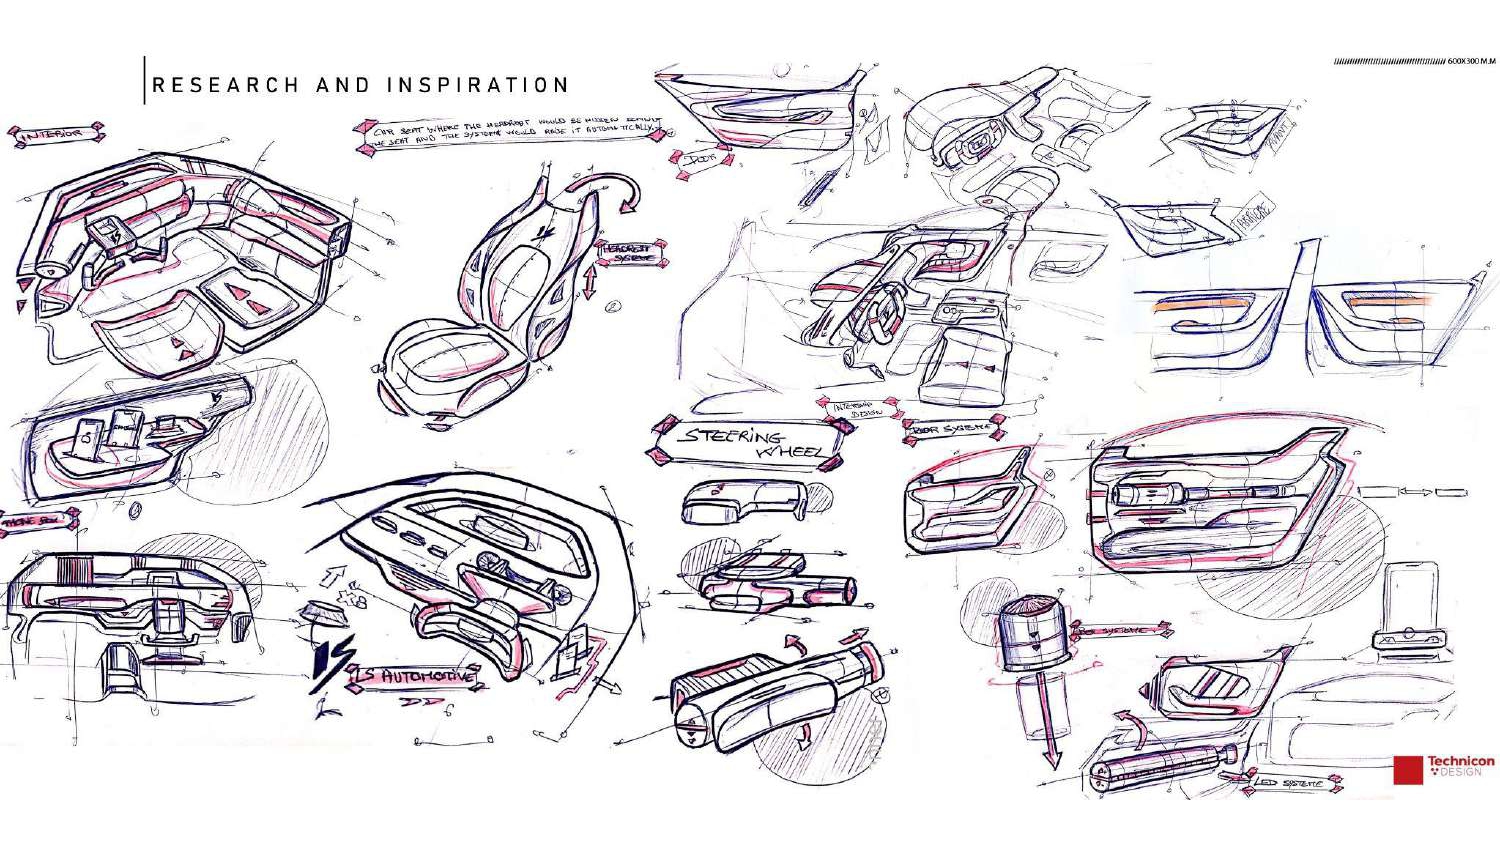 RESEARCH AND INSPIRATION
600X300 M.M
INTERIOR
CAR SEAT WHERE THE HEADREST WOULD BE HIDDEN BEHIND
THE SEAT AND THE SYSTEME WOULD RAISE IT AUTOMATICALLY
DOOR
AVANT
HEADREST
SYSTEME
2
INTERIOR
DESIGN
STEERING
WHEEL
DOOR SYSTEME
PHONE BOX
LS
LS AUTOMOTIVE
SYSTEME
LED SYSTEME
Technicon
DESIGN